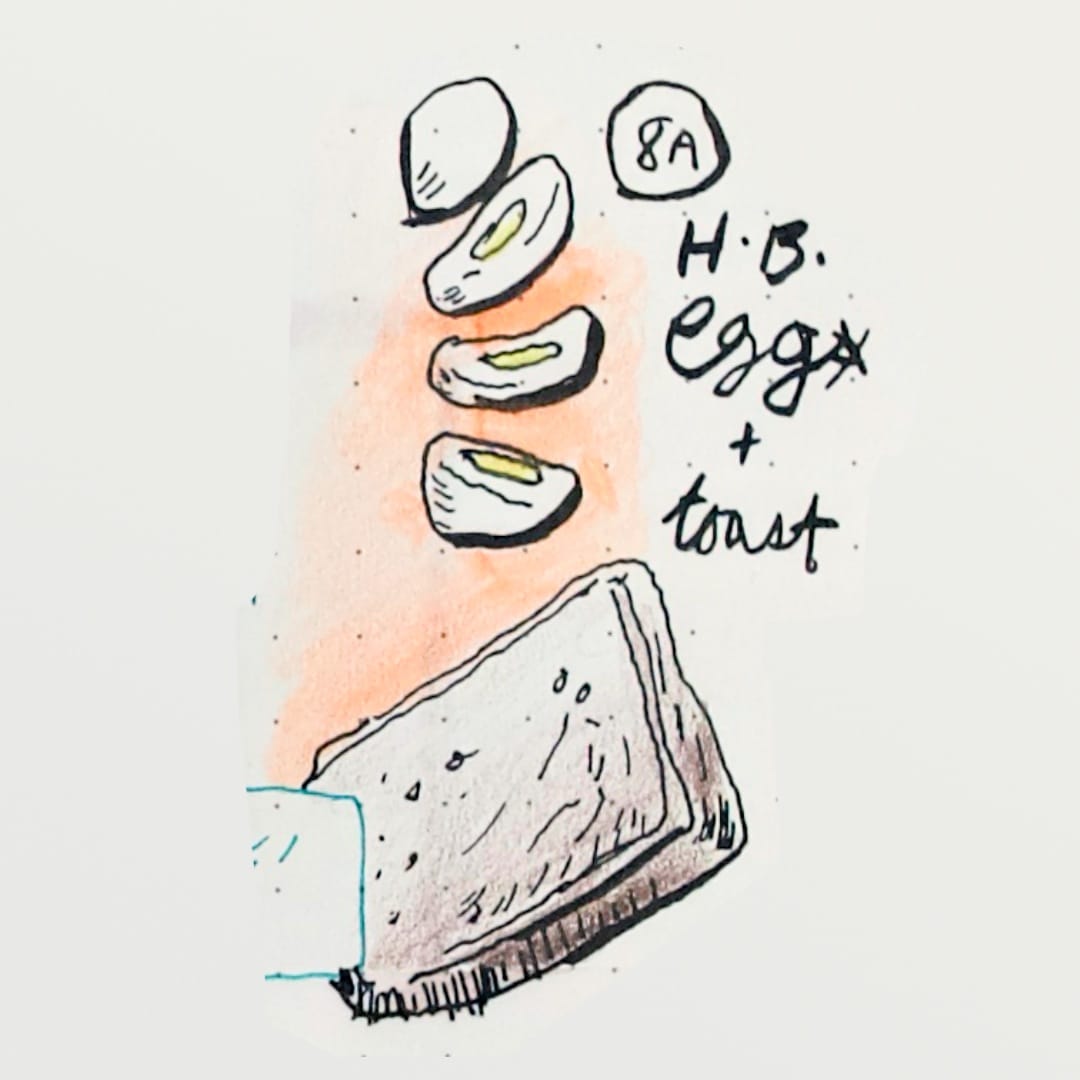 8A
H.B.
eggs
+
toast